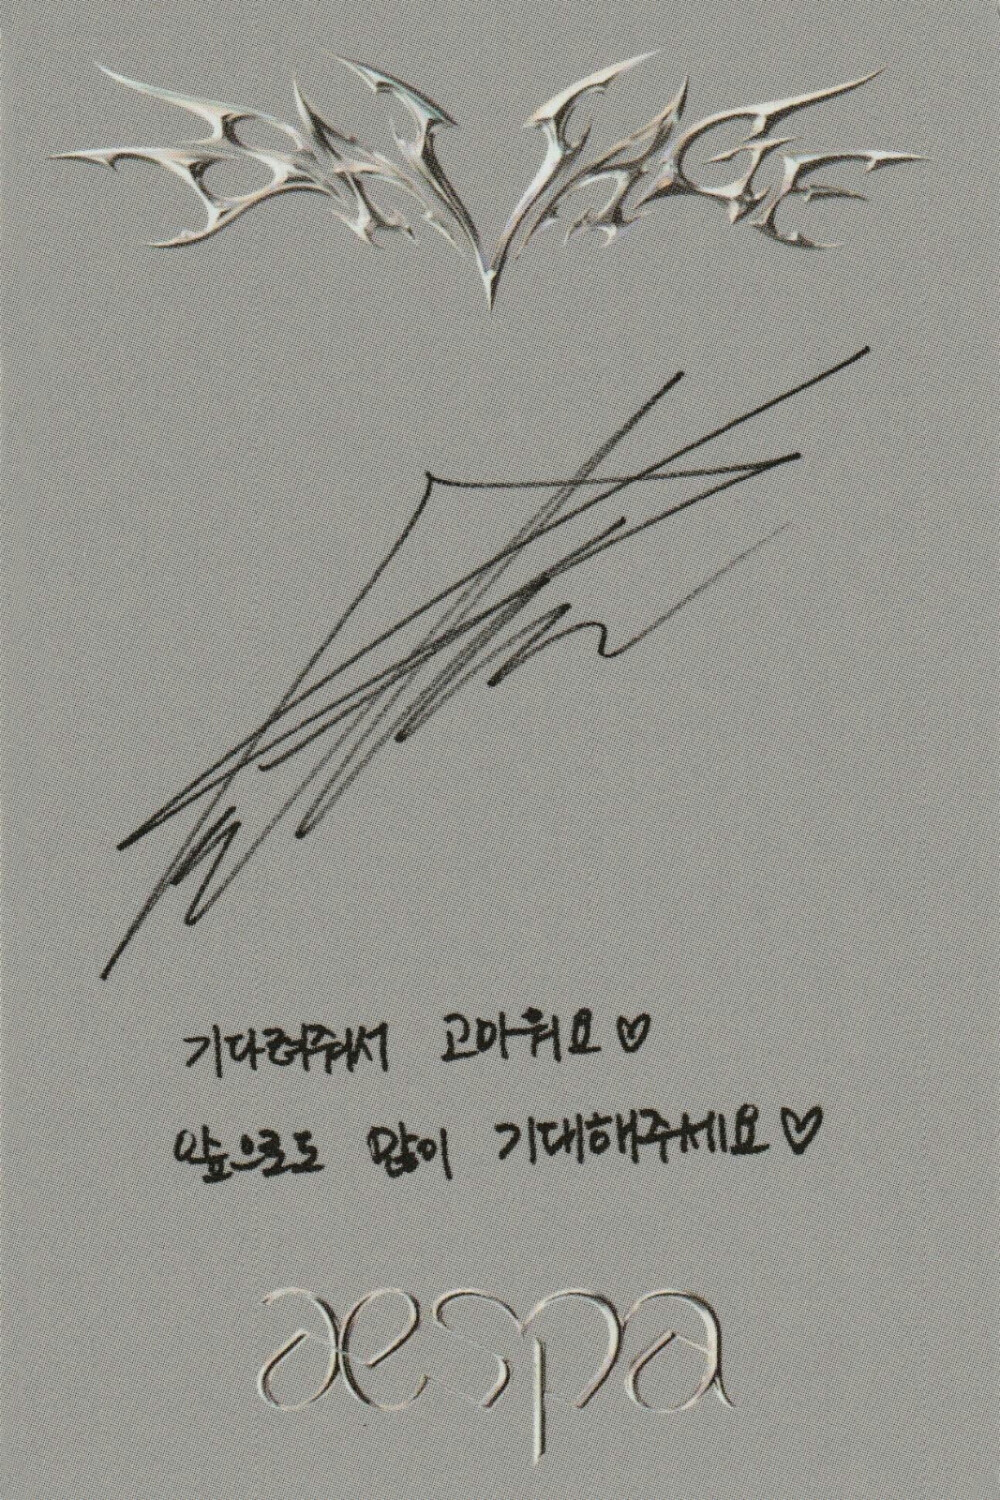 SAVAGE
기다려줘서 고마워요♡
앞으로도 많이 기대해주세요♡
aespa